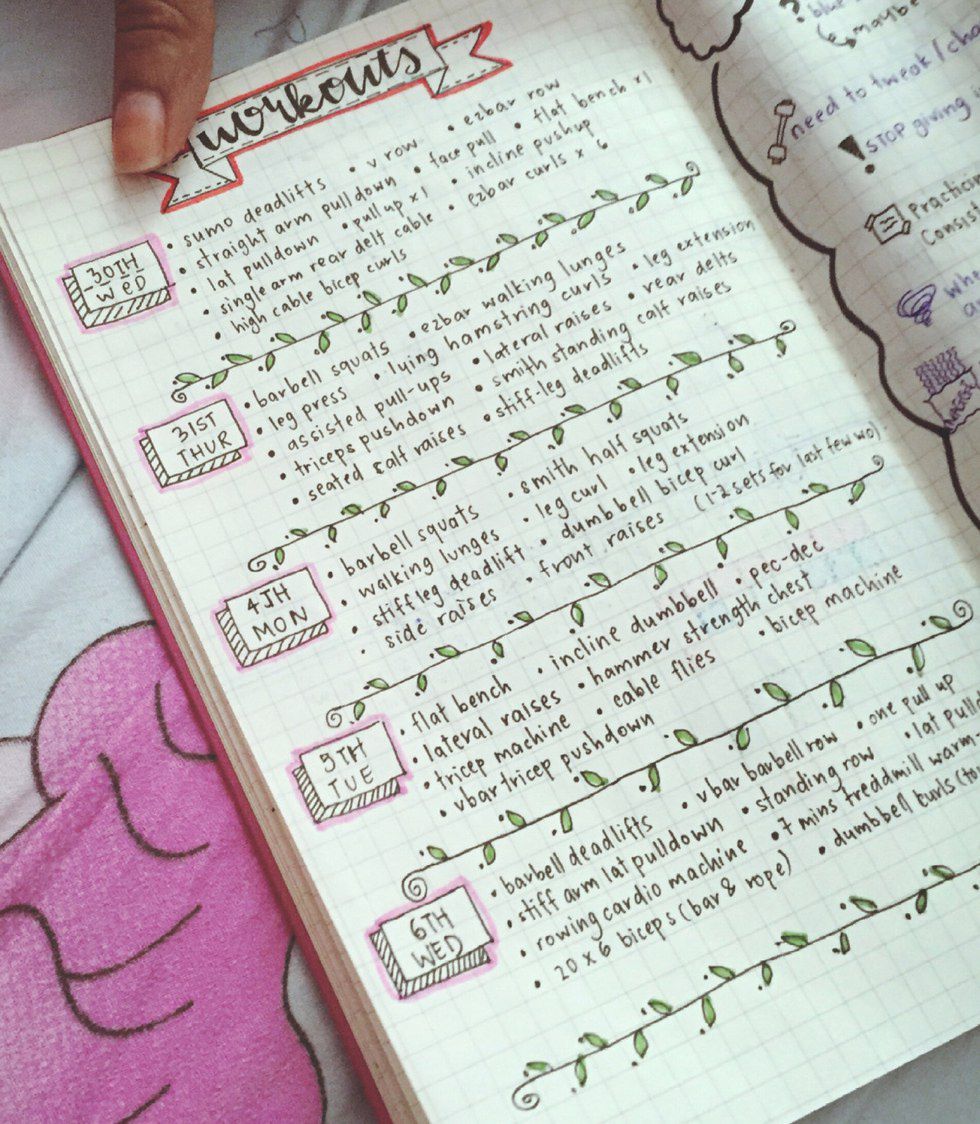 workouts
30TH WED
• sumo deadlifts • v row • ezbar row
• straight arm pulldown • face pull • flat bench x1
• lat pulldown • pull up x1 • incline pushup
• single arm rear delt cable • ezbar curls x 6
• high cable bicep curls
31ST THUR
• barbell squats • ezbar walking lunges
• leg press • lying hamstring curls • leg extension
• assisted pull-ups • lateral raises • rear delts
• triceps pushdown • smith standing calf raises
• seated calf raises • stiff-leg deadlifts
4TH MON
• barbell squats • smith half squats
• walking lunges • leg curl • leg extension
• stiff leg deadlift • dumbbell bicep curl
• side raises • front raises (1-2 sets for last few wo)
5TH TUE
• flat bench • incline dumbbell • pec-dec
• lateral raises • hammer strength chest
• tricep machine • cable flies • bicep machine
• vbar tricep pushdown
6TH WED
• barbell deadlifts • vbar barbell row • one pull up
• stiff arm lat pulldown • standing row • lat
• rowing cardio machine • 7 mins treddmill warm-
• 20 x 6 biceps (bar & rope) • dumbbell curls
?
maybe
need to tweak/
! STOP giving